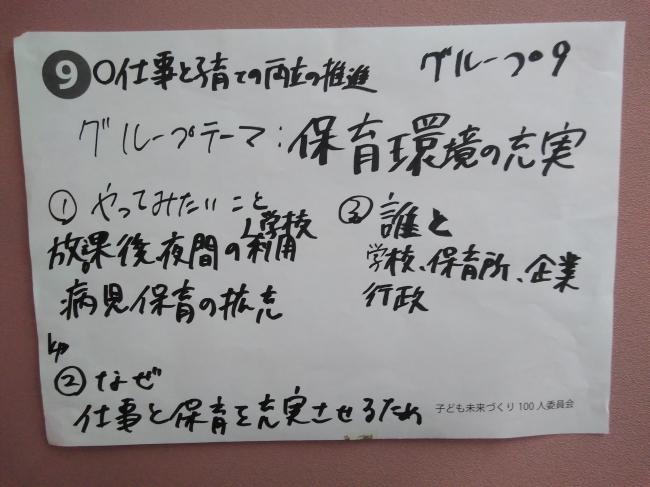 9 〇仕事と子育ての両立の推進 グループ9
グループテーマ:保育環境の充実
① やってみたいこと
放課後、夜間の学校利用
病児保育の拡充
② なぜ
仕事と保育を充実させるため
③ 誰と
学校、保育所、企業
行政
子ども未来づくり100人委員会